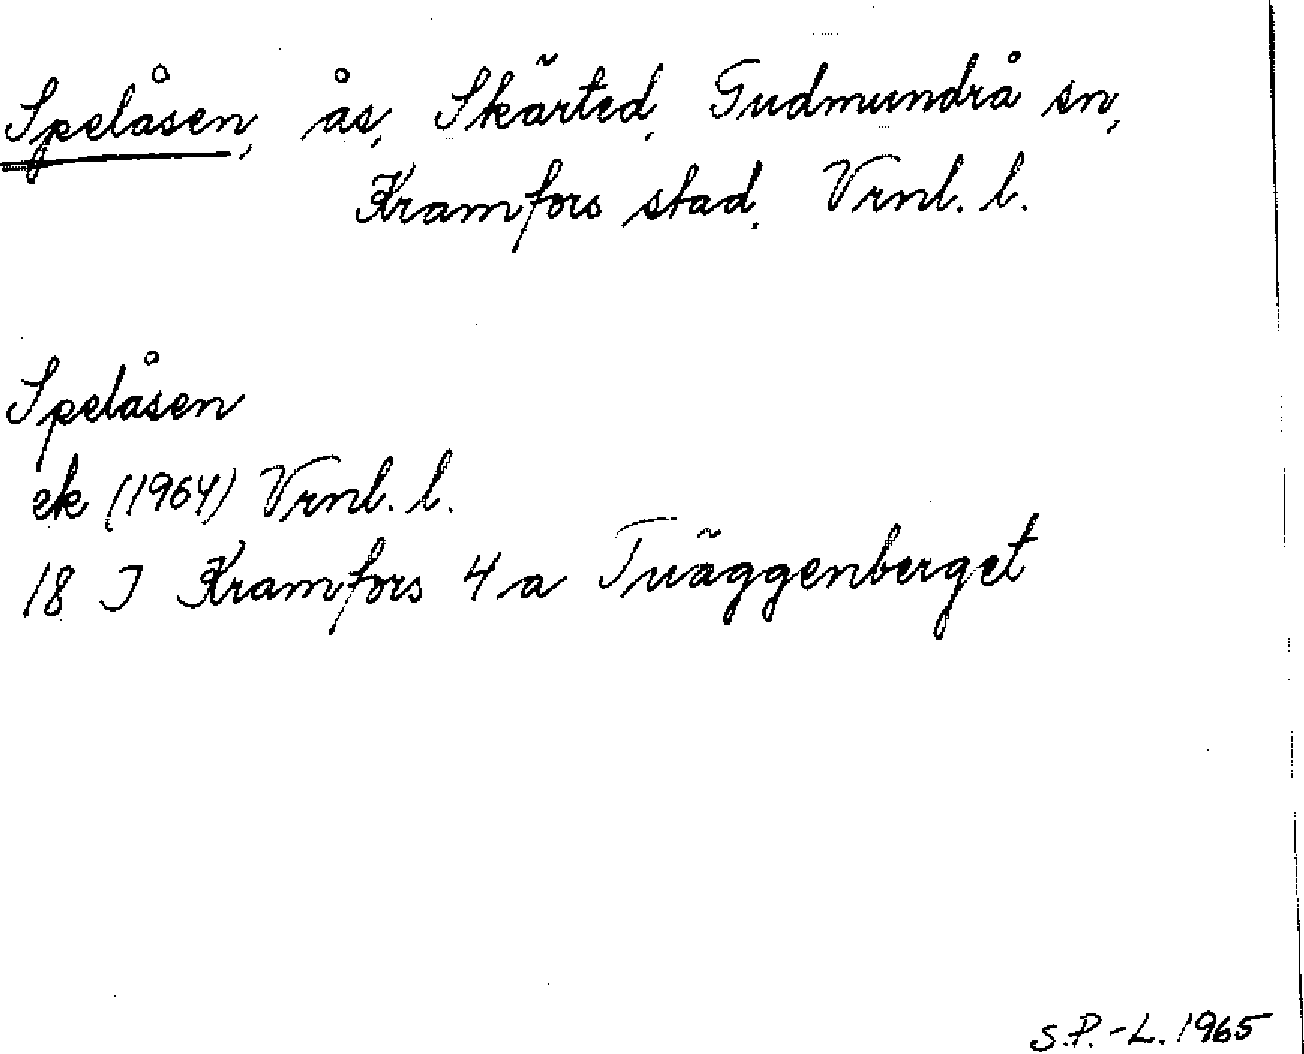 Spelåsen, ås, Skärted, Gudmundrå sn,
Kramfors stad. Vrnl. l.
Spelåsen
ek (1964) Vrnl. l.
18 I Kramfors 4 a Tväggenberget
S.P.-L. 1965